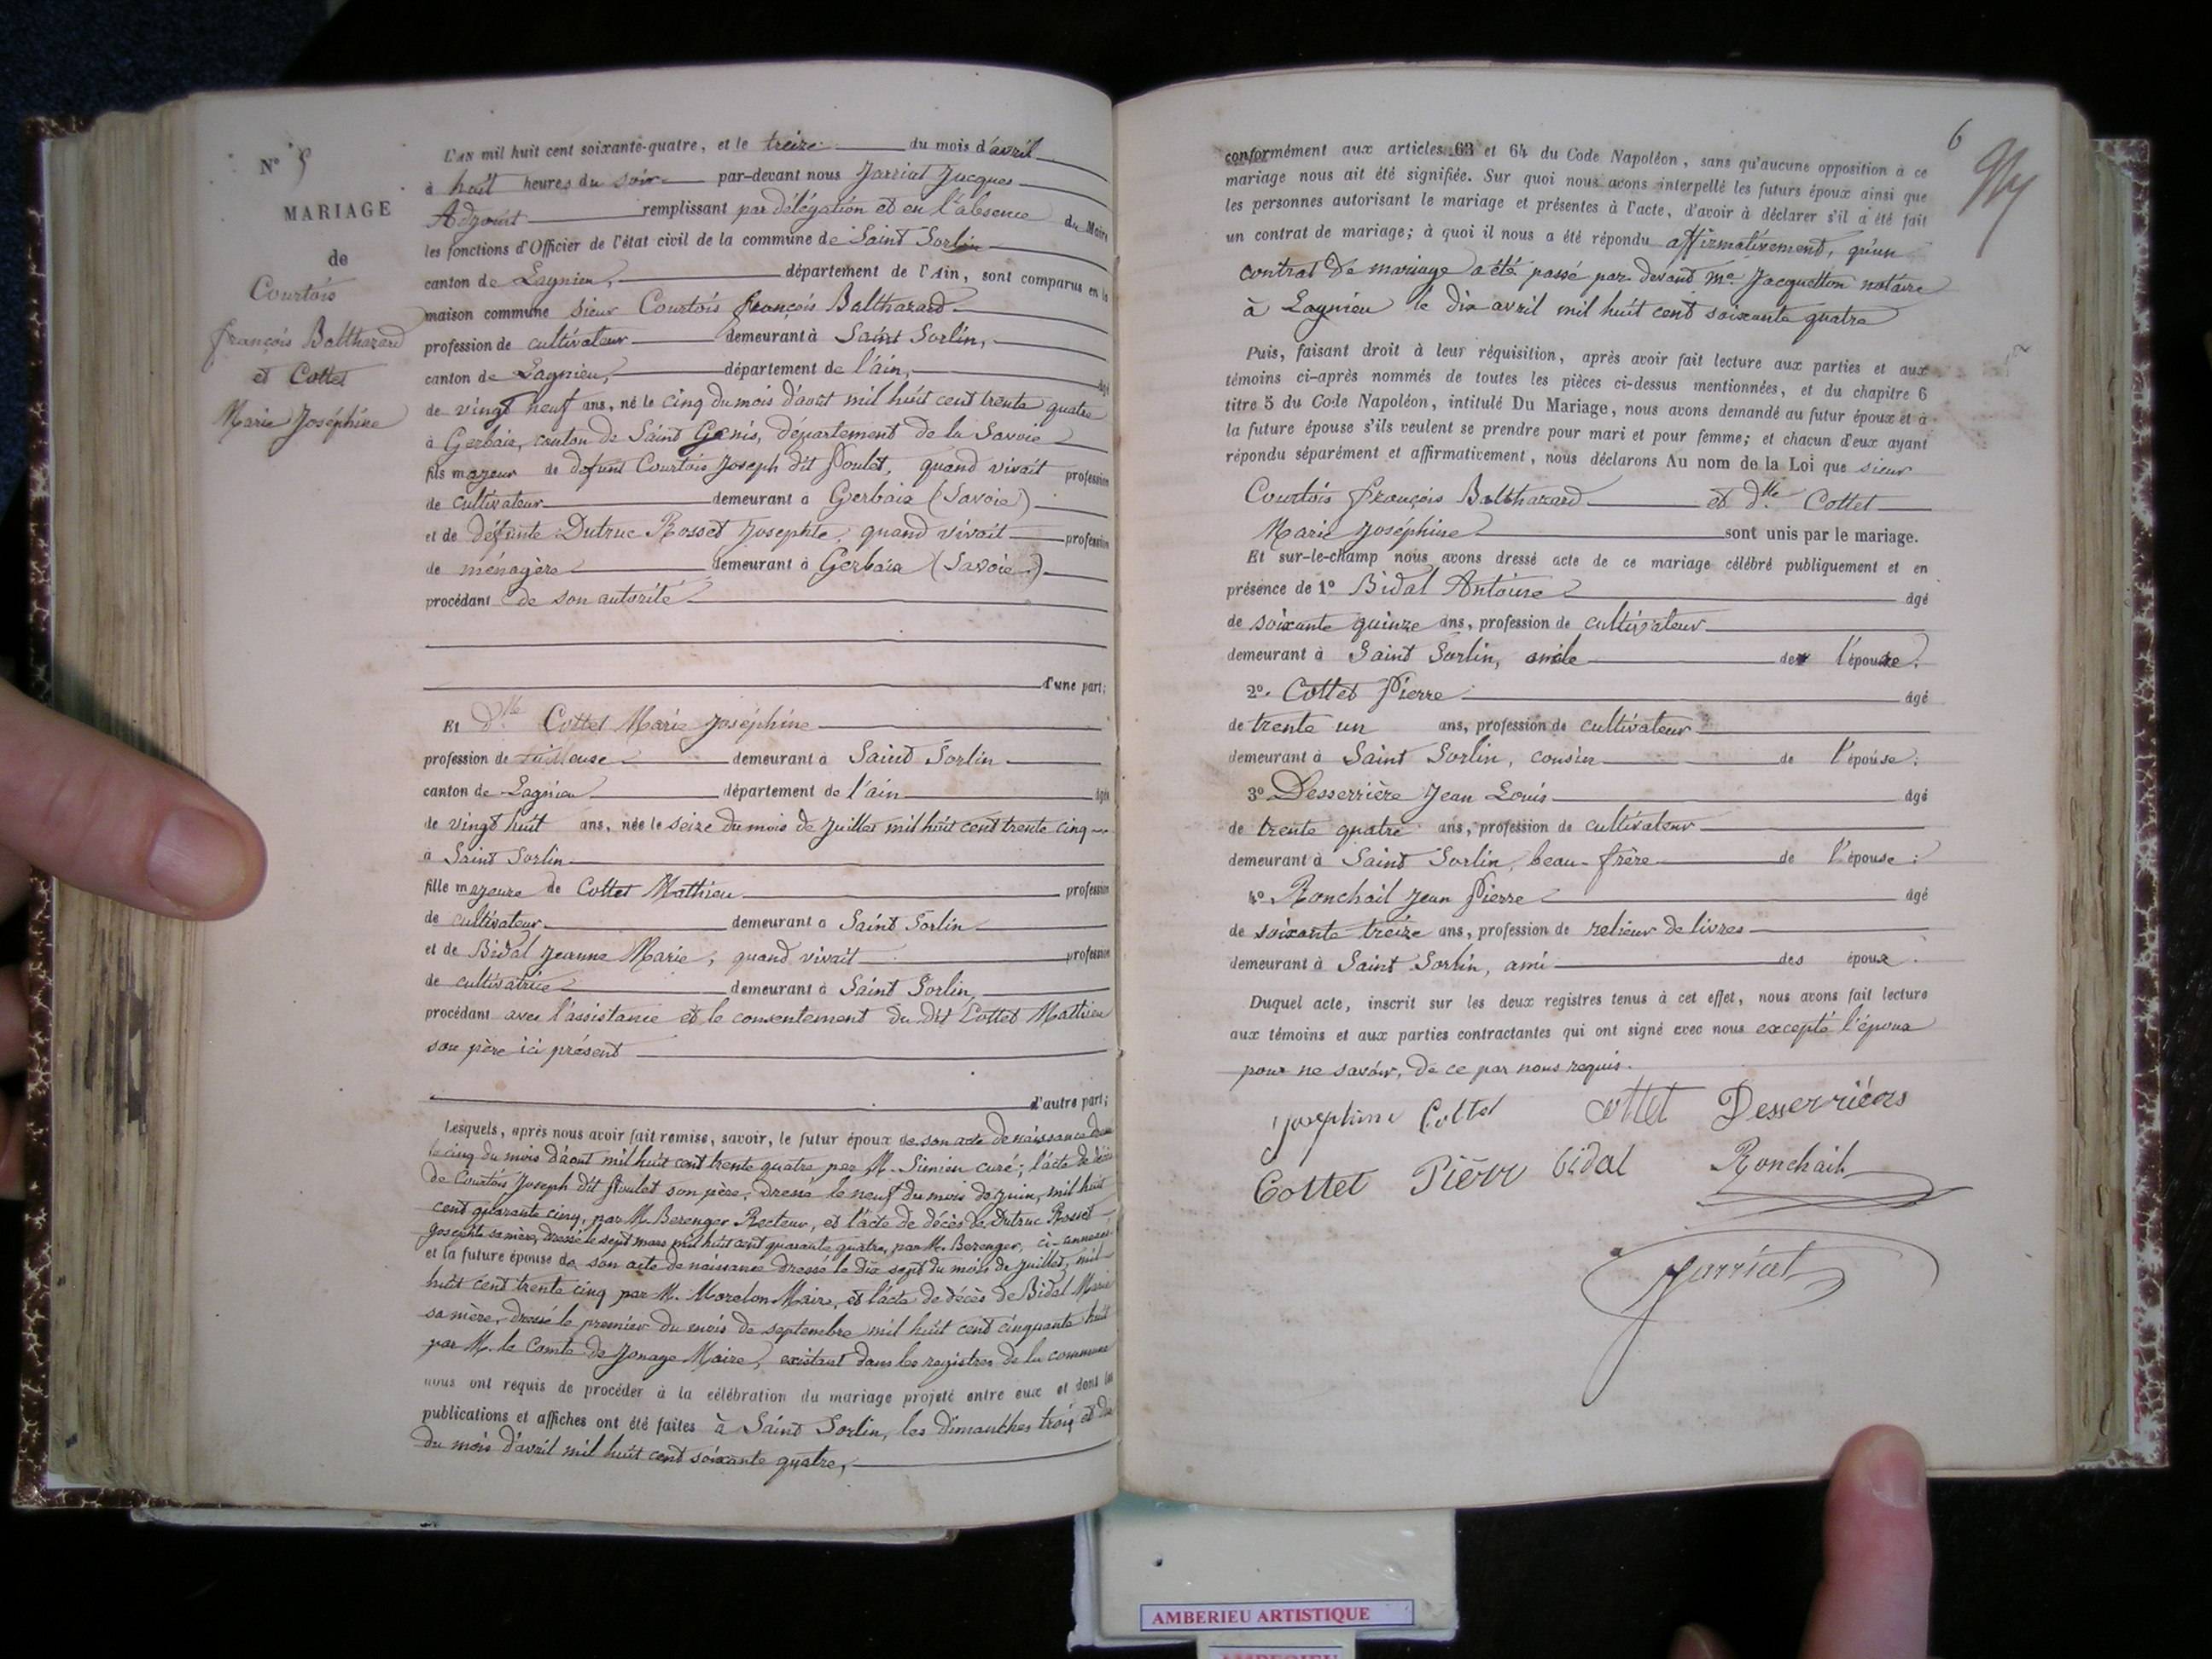 N° 5
MARIAGE
de
Courtois
françois Balthazard
et Cottet
Marie Joséphine
L'AN mil huit cent soixante-quatre, et le treize du mois d'avril
à huit heures du soir par-devant nous Jarriat Jacques
Adjoint remplissant par délégation et en l'absence du Maire
les fonctions d'Officier de l'état civil de la commune de Saint Sorlin
canton de Lagnieu, département de l'Ain, sont comparus en la
maison commune sieur Courtois françois Balthazard
profession de cultivateur demeurant à Saint Sorlin,
canton de Lagnieu, département de l'ain, âgé
de vingt neuf ans, né le cinq du mois d'août mil huit cent trente quatre
à Gerbaix, canton de Saint Genis, département de la Savoie
fils majeur de defunt Courtois Joseph dit Poulet, quand vivait profession
de cultivateur demeurant à Gerbaix (Savoie)
et de défunte Dutruc Rosset Josephte, quand vivait profession
de ménagère demeurant à Gerbaix (Savoie)
procédant de son autorité
d'une part;
Et Dlle Cottet Marie Joséphine
profession de tailleuse demeurant à Saint Sorlin
canton de Lagnieu département de l'ain âgée
de vingt huit ans, née le seize du mois de juillet mil huit cent trente cinq
à Saint Sorlin
fille majeure de Cottet Mathieu profession
de cultivateur demeurant à Saint Sorlin
et de Bidal Jeanne Marie, quand vivait profession
de cultivatrice demeurant à Saint Sorlin,
procédant avec l'assistance et le consentement du dit Cottet Mathieu
son père ici présent
d'autre part;
Lesquels, après nous avoir fait remise, savoir, le futur époux de son acte de naissance
le cinq du mois d'août mil huit cent trente quatre par M. Simien curé; l'acte de décès
de Courtois Joseph dit Poulet son père, dressé le neuf du mois de juin, mil huit
cent quarante cinq, par M. Berenger Recteur, et l'acte de décès de Dutruc Rosset
Josephte sa mère, dressé le sept mars mil huit cent quarante quatre, par M. Berenger, ci-annexés
et la future épouse de son acte de naissance dressé le dix sept du mois de juillet, mil
huit cent trente cinq par M. Morelon Maire, et l'acte de décès de Bidal Marie
sa mère, dressé le premier du mois de septembre mil huit cent cinquante huit
par M. le Comte de Jonage Maire, existant dans les registres de la commune
nous ont requis de procéder à la célébration du mariage projeté entre eux et dont les
publications et affiches ont été faites à Saint Sorlin, les dimanches trois et dix
du mois d'avril mil huit cent soixante quatre,
6
conformément aux articles 63 et 64 du Code Napoléon, sans qu'aucune opposition à ce
mariage nous ait été signifiée. Sur quoi nous avons interpellé les futurs époux ainsi que
les personnes autorisant le mariage et présentes à l'acte, d'avoir à déclarer s'il a été fait
un contrat de mariage; à quoi il nous a été répondu affirmativement, qu'un
contrat de mariage a été passé par devant Me Jacquetton notaire
à Lagnieu le dix avril mil huit cent soixante quatre
Puis, faisant droit à leur réquisition, après avoir fait lecture aux parties et aux
témoins ci-après nommés de toutes les pièces ci-dessus mentionnées, et du chapitre 6
titre 5 du Code Napoléon, intitulé Du Mariage, nous avons demandé au futur époux et à
la future épouse s'ils veulent se prendre pour mari et pour femme; et chacun d'eux ayant
répondu séparément et affirmativement, nous déclarons Au nom de la Loi que sieur
Courtois françois Balthazard et dlle Cottet
Marie Joséphine sont unis par le mariage.
Et sur-le-champ nous avons dressé acte de ce mariage célébré publiquement et en
présence de 1° Bidal Antoine âgé
de soixante quinze ans, profession de cultivateur
demeurant à Saint Sorlin, oncle de l'épouse.
2°. Cottet Pierre âgé
de trente un ans, profession de cultivateur
demeurant à Saint Sorlin, cousin de l'épouse;
3° Desserrière Jean Louis âgé
de trente quatre ans, profession de cultivateur
demeurant à Saint Sorlin, beau-frère de l'épouse;
4° Ronchail Jean Pierre âgé
de soixante treize ans, profession de relieur de livres
demeurant à Saint Sorlin, ami des époux.
Duquel acte, inscrit sur les deux registres tenus à cet effet, nous avons fait lecture
aux témoins et aux parties contractantes qui ont signé avec nous excepté l'époux
pour ne savoir, de ce par nous requis.
josephine Cottet Cottet Desserrières
Cottet Pièrr bidal Ronchail
Jarriat
AMBERIEU ARTISTIQUE
AMBERIEU